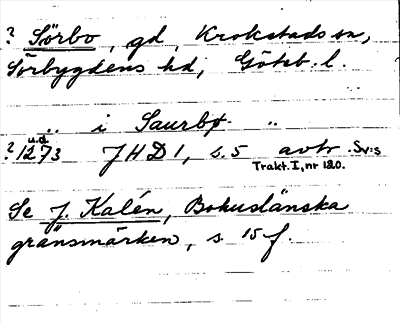 ? Sörbo, gd, Krokstads sn,
Sörbygdens hd, Göteb. l.
" i Saurbø "
u.å.
? 1273 JHD 1, s. 5 avtr. Sv:s
Trakt. I, nr 120.
Se J. Kalén, Bohuslänska
gränsmärken, s. 15 f.